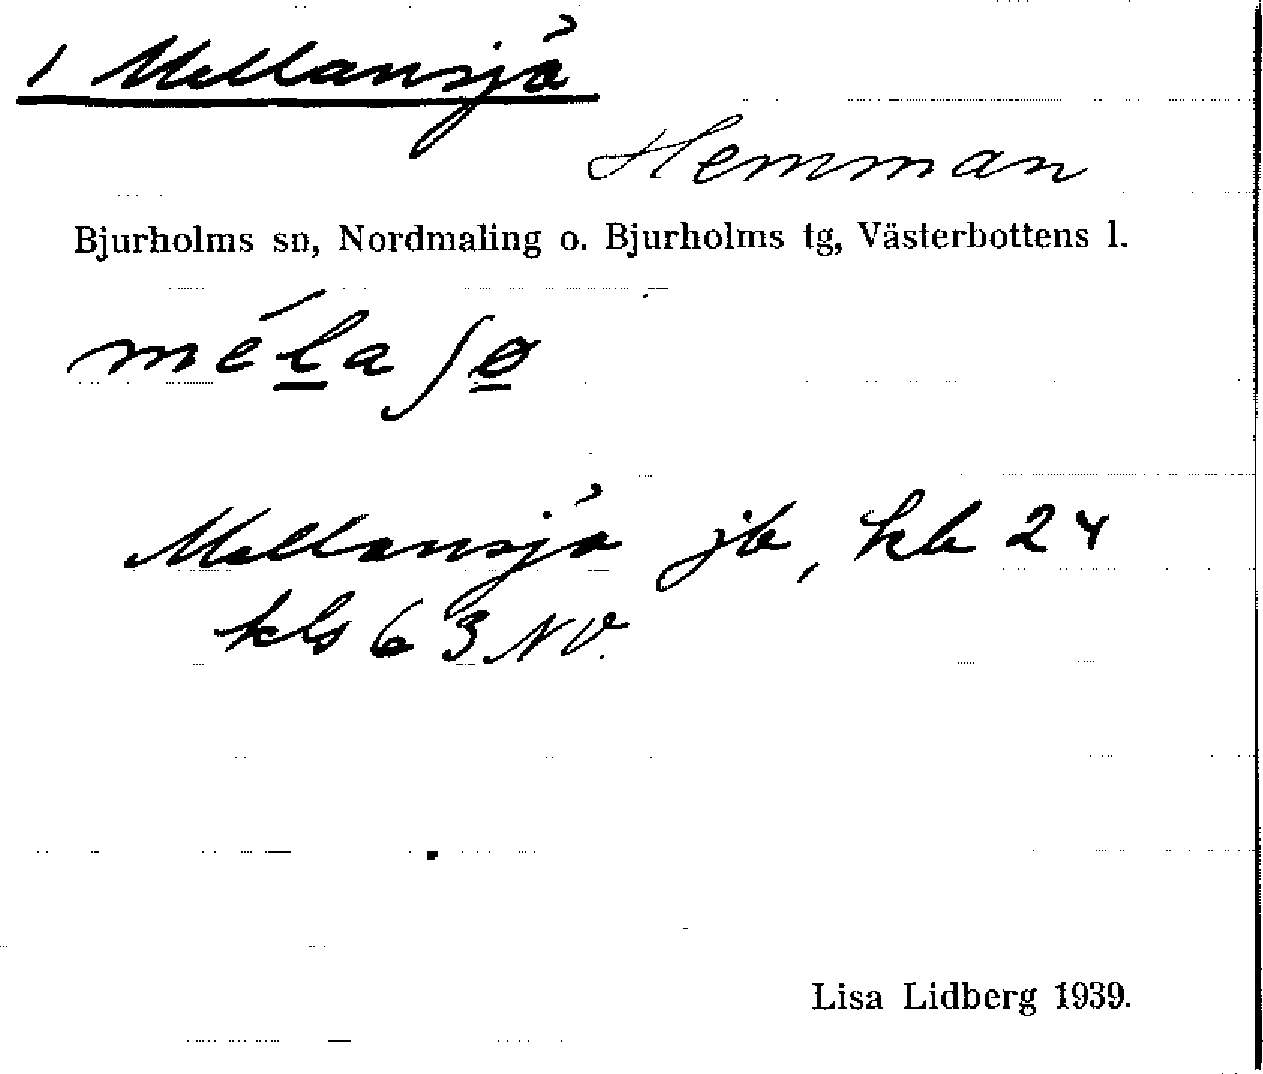 1 Mellansjö
Hemman
Bjurholms sn, Nordmaling o. Bjurholms tg, Västerbottens l.
mélaʃø
Mellansjö jb, kb 24
kls 63 NV.
Lisa Lidberg 1939.